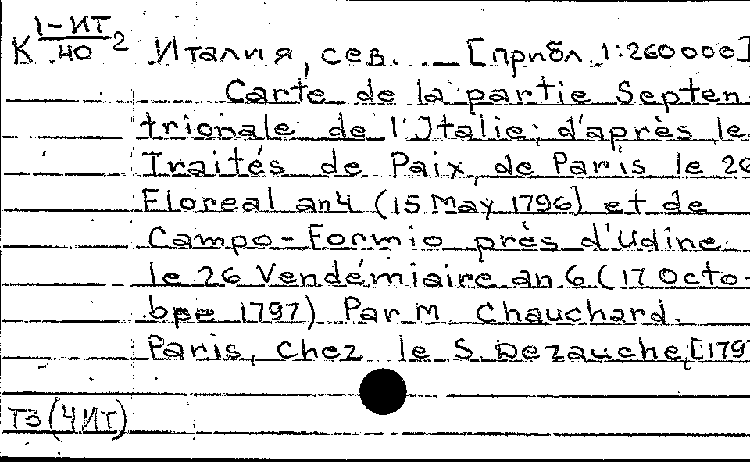 К 1-ИТ/40 2 Италия, сев. — [прибл. 1:260000]
Carte de la partie Septen-
trionale de l'Italie; d'après le
Traités de Paix, de Paris le 26
Floreal an 4 (15 May 1796) et de
Campo-Formio près d'Udine
le 26 Vendémiaire an 6 (17 Octo-
bre 1797) Par M. Chauchard.
Paris, Chez le S. Dezauche, [179
Т3 (4ИТ)